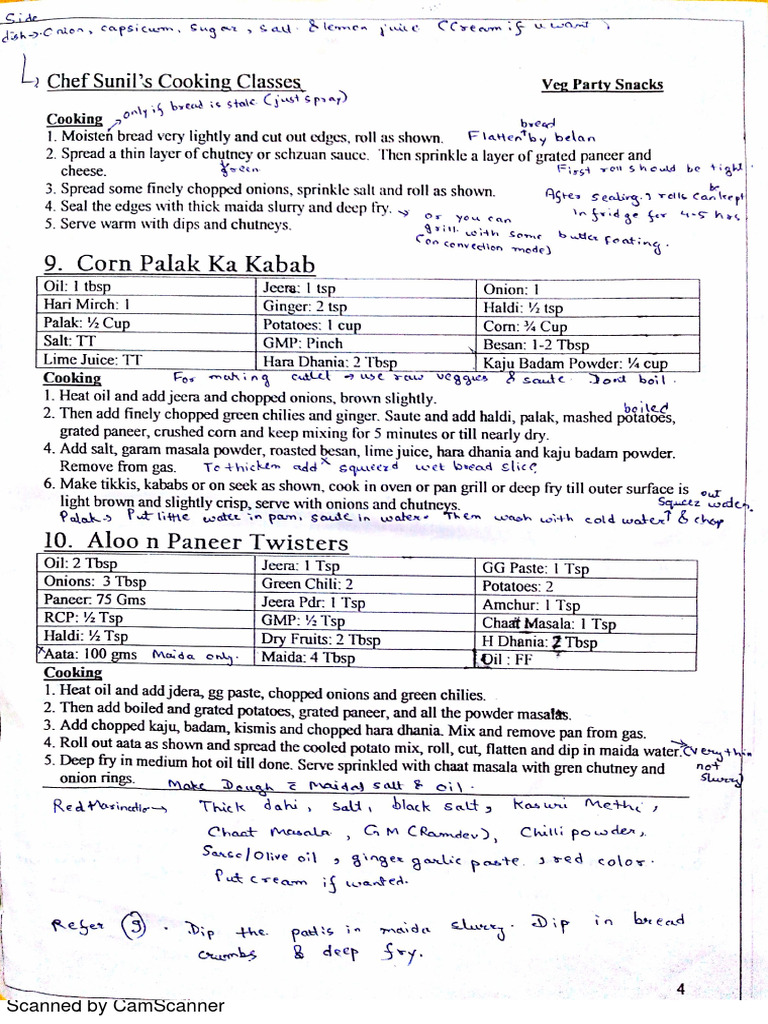 Side
dish → Onion, capsicum, sugar, salt & lemon juice (Cream if u want)
Chef Sunil's Cooking Classes Veg Party Snacks
Cooking only if bread is stale (just spray)
1. Moisten bread very lightly and cut out edges, roll as shown. Flatten bread by belan
2. Spread a thin layer of chutney or schzuan sauce. Then sprinkle a layer of grated paneer and
cheese. green First roll should be tight
3. Spread some finely chopped onions, sprinkle salt and roll as shown. After sealing, rolls can be kept
4. Seal the edges with thick maida slurry and deep fry. → or you can in fridge for 4-5 hrs
5. Serve warm with dips and chutneys. grill with some butter coating.
(on convection mode)
9. Corn Palak Ka Kabab
Oil: 1 tbsp Jeera: 1 tsp Onion: 1
Hari Mirch: 1 Ginger: 2 tsp Haldi: ½ tsp
Palak: ½ Cup Potatoes: 1 cup Corn: ¾ Cup
Salt: TT GMP: Pinch Besan: 1-2 Tbsp
Lime Juice: TT Hara Dhania: 2 Tbsp Kaju Badam Powder: ¼ cup
Cooking For making cutlet → use raw veggies & saute. Dont boil.
1. Heat oil and add jeera and chopped onions, brown slightly.
2. Then add finely chopped green chilies and ginger. Saute and add haldi, palak, mashed boiled potatoes,
grated paneer, crushed corn and keep mixing for 5 minutes or till nearly dry.
4. Add salt, garam masala powder, roasted besan, lime juice, hara dhania and kaju badam powder.
Remove from gas. To thicken add squeezd wet bread slice
6. Make tikkis, kababs or on seek as shown, cook in oven or pan grill or deep fry till outer surface is
light brown and slightly crisp, serve with onions and chutneys. Squeez out water.
Palak → Put little water in pan, saute in water. Then wash with cold water ↑ & chop
10. Aloo n Paneer Twisters
Oil: 2 Tbsp Jeera: 1 Tsp GG Paste: 1 Tsp
Onions: 3 Tbsp Green Chili: 2 Potatoes: 2
Paneer: 75 Gms Jeera Pdr: 1 Tsp Amchur: 1 Tsp
RCP: ½ Tsp GMP: ½ Tsp Chaat Masala: 1 Tsp
Haldi: ½ Tsp Dry Fruits: 2 Tbsp H Dhania: 2 Tbsp
Aata: 100 gms Maida only. Maida: 4 Tbsp Oil : FF
Cooking
1. Heat oil and add jdera, gg paste, chopped onions and green chilies.
2. Then add boiled and grated potatoes, grated paneer, and all the powder masalas.
3. Add chopped kaju, badam, kismis and chopped hara dhania. Mix and remove pan from gas.
4. Roll out aata as shown and spread the cooled potato mix, roll, cut, flatten and dip in maida water. (very thin
5. Deep fry in medium hot oil till done. Serve sprinkled with chaat masala with gren chutney and not
onion rings. slurry)
Make Dough Maida, salt & oil.
Red Marination → Thick dahi, salt, black salt, Kasuri Methi,
Chaat Masala, GM (Ramdev), Chilli powder,
Sarso/Olive oil, ginger garlic paste, red color.
Put cream if wanted.
Refer (9). Dip the patis in maida slurry. Dip in bread
crumbs & deep fry.
4
Scanned by CamScanner